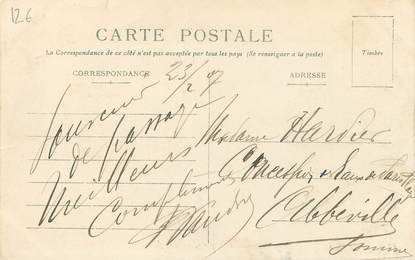 126
CARTE POSTALE
La Correspondance de ce côté n'est pas acceptée par tous les pays (Se renseigner a la poste)
Timbre
CORRESPONDANCE
ADRESSE
23/2 07
Souvenir
de passage
Meilleurs
Compliments
Madame Hardier
Abbeville
Somme